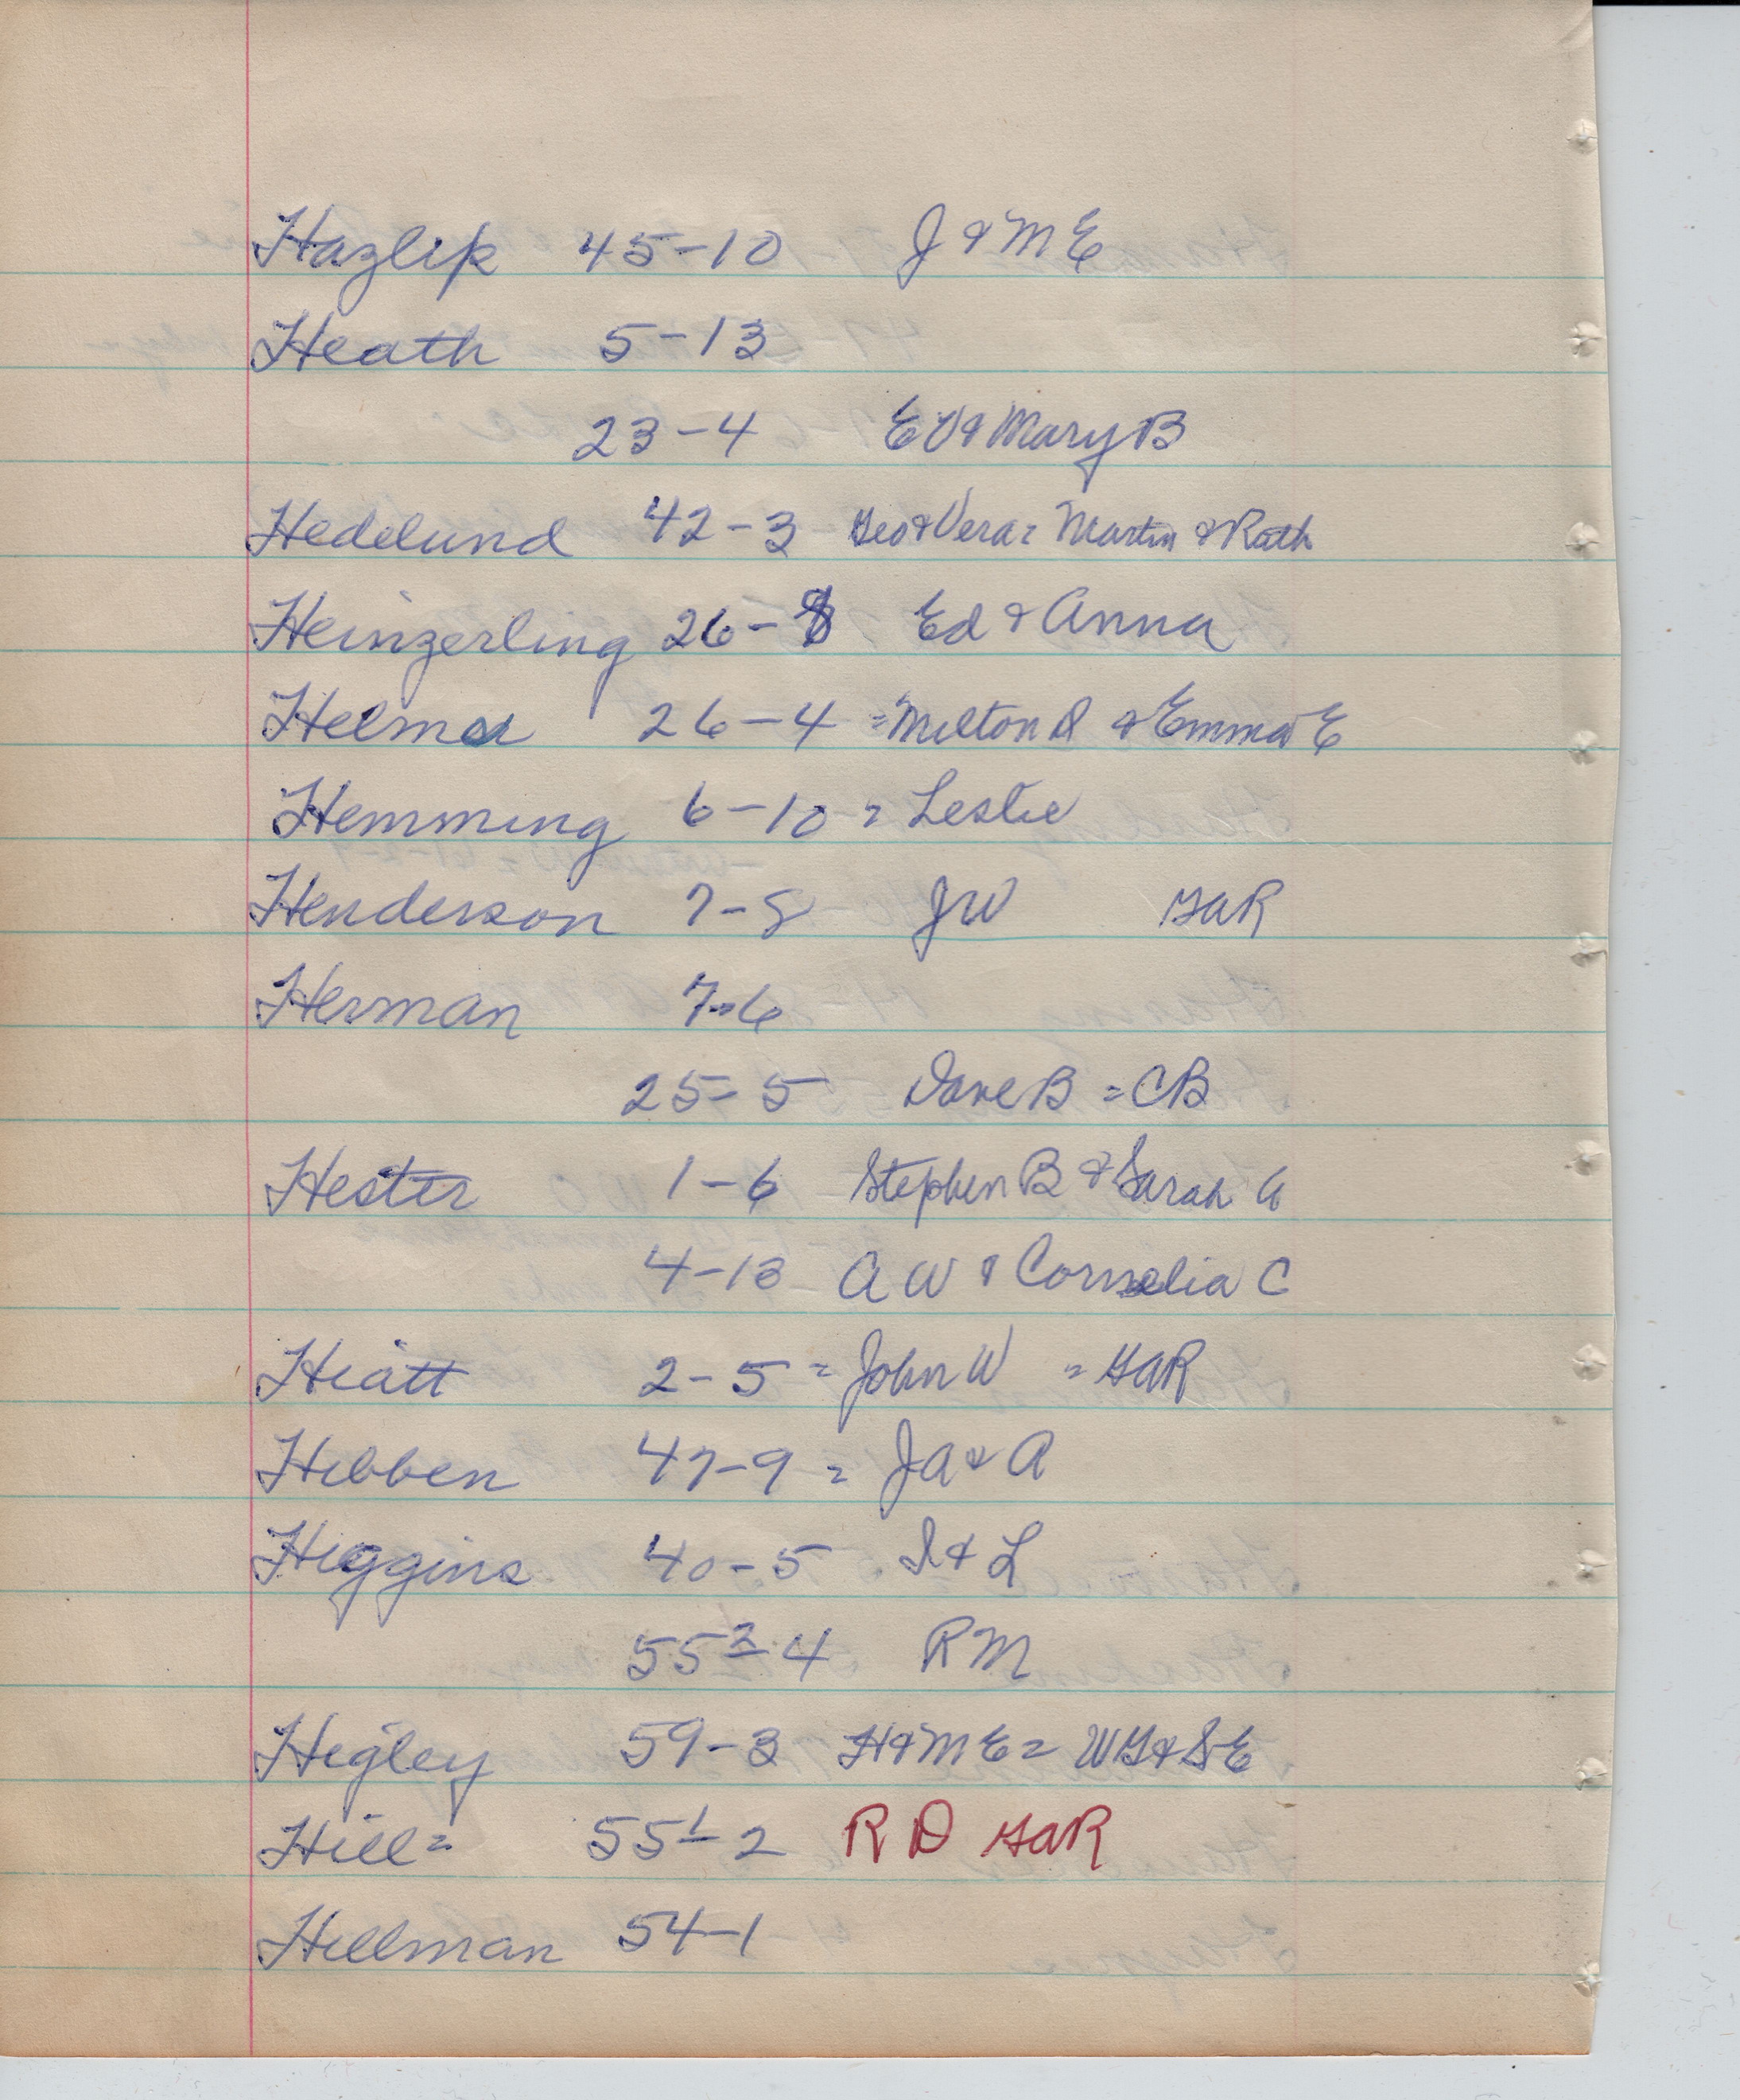 Hazlip 45-10 J & M E
Heath 5-13
23-4 E V & Mary B
Hedelund 42-3 Geo & Vera = Martin & Ruth
Heinzerling 26-8 Ed & Anna
Helms 26-4 = Milton D & Emma E
Hemming 6-10 = Leslie
Henderson 7-8 JW GAR
Herman 7-6
25-5 Dave B = CB
Hester 1-6 Stephen B & Sarah A
4-13 A W & Cornelia C
Hiatt 2-5 = John W = GAR
Hibben 47-9 = JA & A
Higgins 40-5 I & L
55²-4 RM
Higley 59-3 H & M E = WG & S E
Hill = 55¹-2 R D GAR
Hillman 54-1